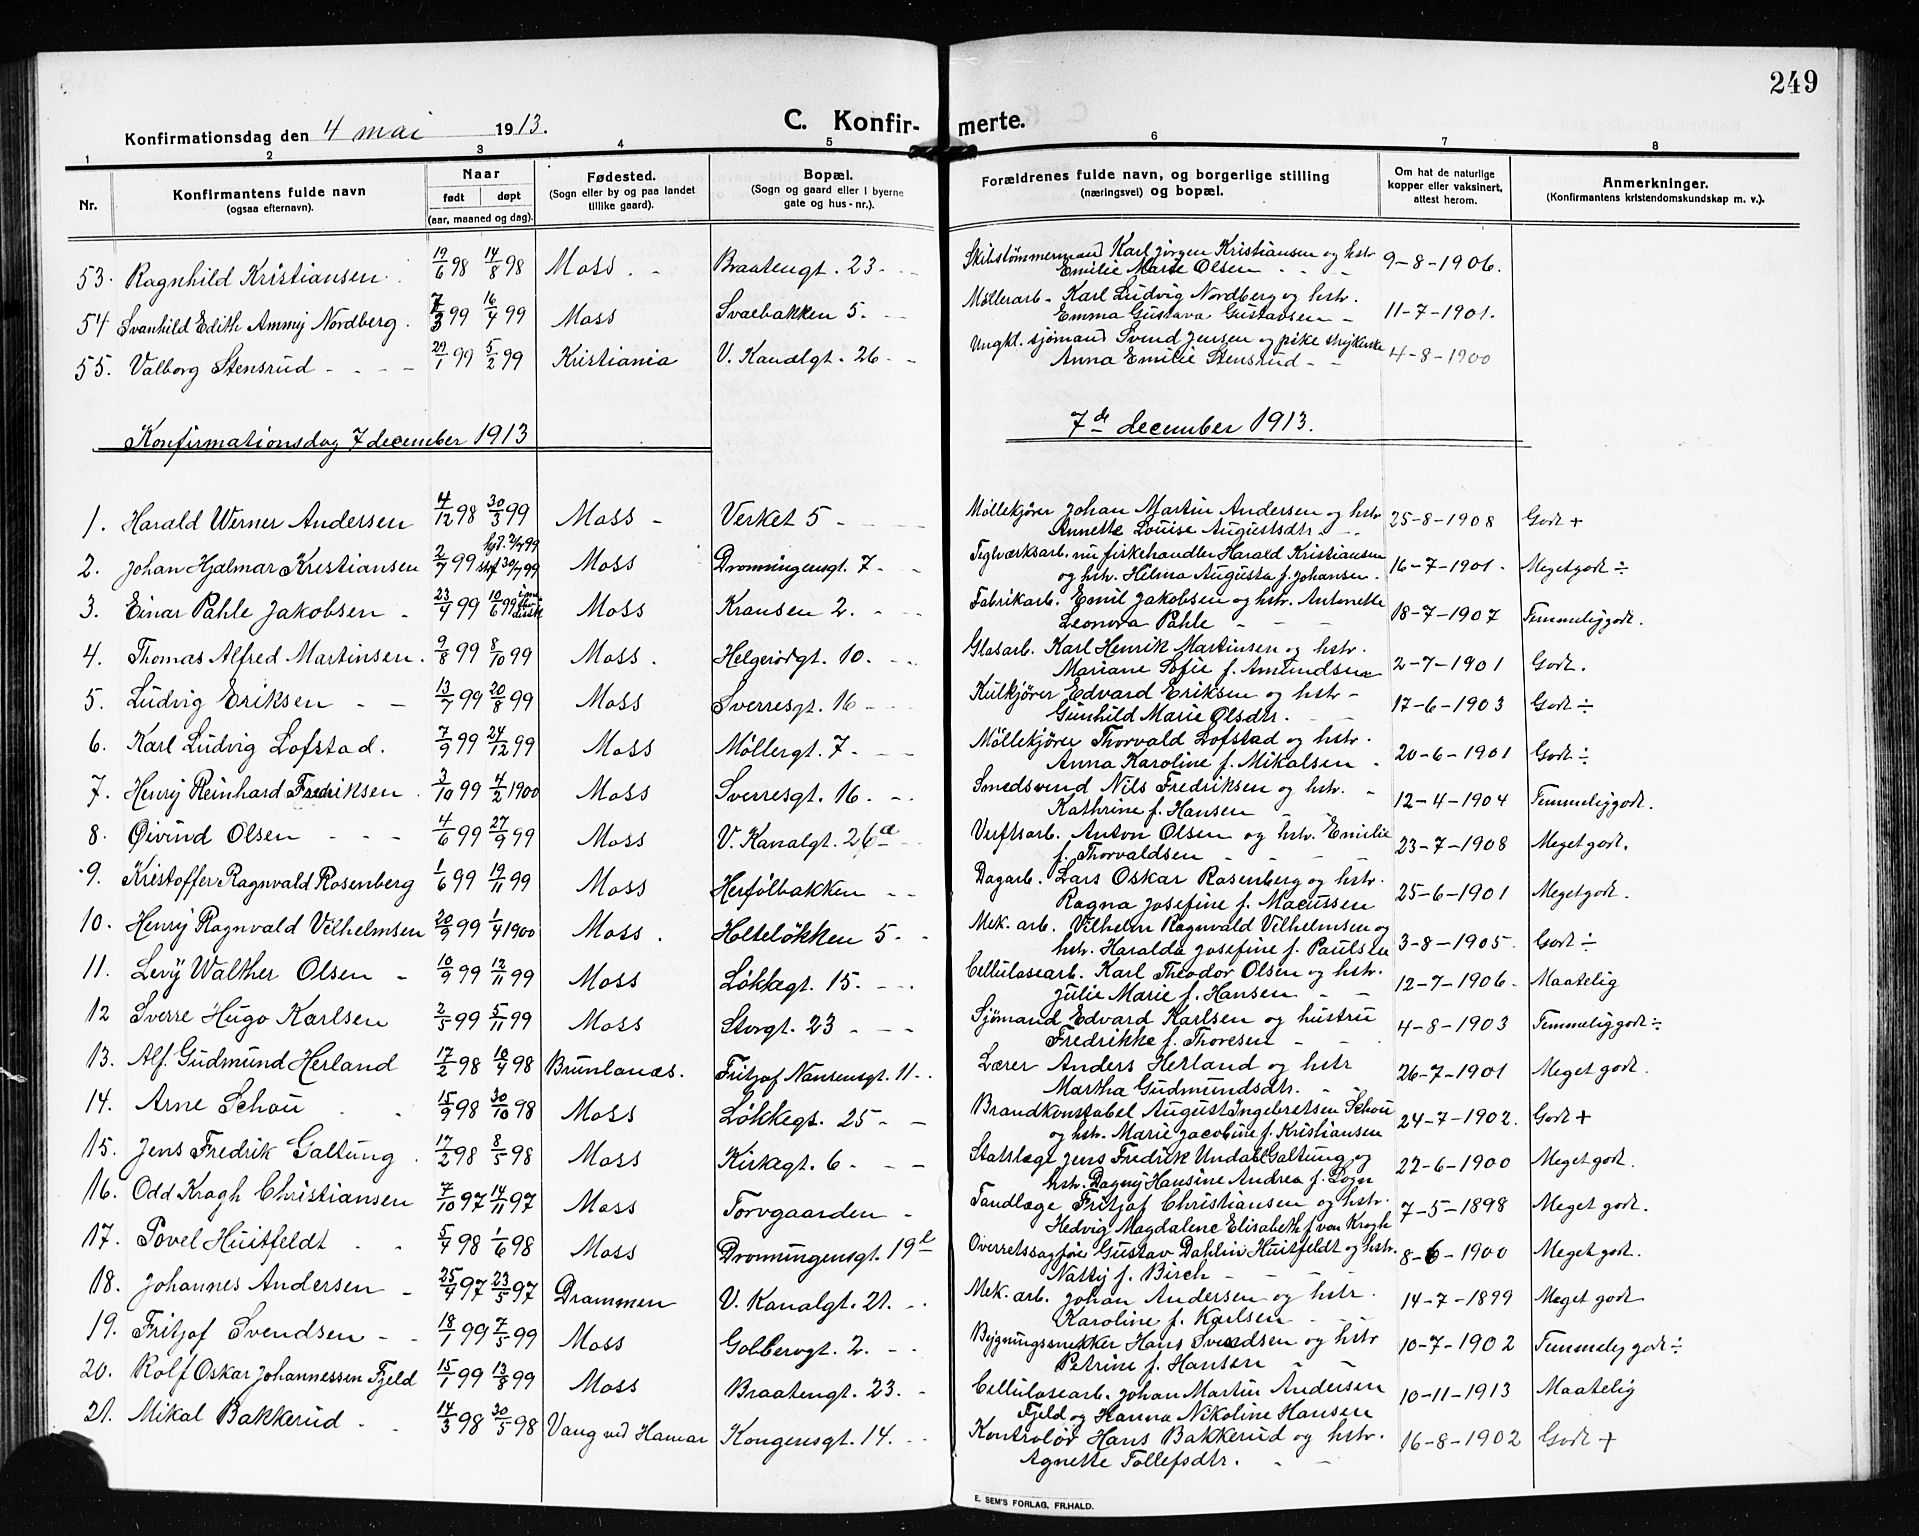 249
Konfirmationsdag den 4 mai 1913.
C. Konfirmerte.
1 2 3 4 5 6 7 8
Nr.
Konfirmantens fulde navn
(ogsaa efternavn).
Naar
født døpt
(aar, maaned og dag).
Fødested.
(Sogn eller by og paa landet
tillike gaard).
Bopæl.
(Sogn og gaard eller i byerne
gate og hus-nr.).
Forældrenes fulde navn, og borgerlige stilling
(næringsvei) og bopæl.
Om hat de naturlige
kopper eller vaksinert,
attest herom.
Anmerkninger.
(Konfirmantens kristendomskundskap m. v.).
53. Ragnhild Kristiansen. 19/6 98 14/8 98 Moss. - Braatengt. 23 - Skibstømmermand Karl Jørgen Kristiansen og hstr 9-8-1906.
Emilie Marie Olsen
54 Svanhild Edith Ammy Nordberg. 7/3 99 16/4 99 Moss Svaebakken 5. - Møllerarb - Karl Ludvig Nordberg og hstr. 11-7-1901.
Emma Gustava Gustavsen -
55. Valborg Stensrud - - - 29/1 99 5/2 99 Kristiania V. Kanalgt. 26 - Ungkl. sjømand Svend Jensen og pike strykerske 4-8-1900
Anna Emilie Stensrud - -
Konfirmationsdag 7 december 1913
7de december 1913.
1. Harald Werner Andersen 4/12 98 30/3 99 Moss - Verket 5 - Møllekjører Johan Martin Andersen og hstr 25-8-1908 Godt +
Annette Louise Augustsdtr - -
2. Johan Hjalmar Kristiansen 2/7 99 Moss Dronningensgt. 7 - Teglværksarb. nu fiskehandler Harald Kristiansen 16-7-1901. Meget godt ÷
og hstr. Hilma Augusta f. Johansen.
3. Einar Pahle Jakobsen - 23/4 99 10/6 99 Moss Kransen 2. - Fabrikarb. Emil Jakobsen og hstr. Antonette 18-7-1907 Temmelig godt.
Leonora Pahle -
4. Thomas Alfred Martinsen. 9/8 99 8/10 99 Moss. Helgerødgt. 10. - Glasarb. Karl Henrik Martinsen og hstr. 2-7-1901 Godt.
Mariane Sofie f. Amundsen
5. Ludvig Eriksen - - 13/7 99 20/8 99 Moss Sverresgt. 16 - Kulkjører Edvard Eriksen og hstr - 17-6-1903 Godt ÷
Gunhild Marie Olsdtr. -
6. Karl Ludvig Lofstad. 7/9 99 24/12 99 Moss Møllergt. 7 - Møllekjører Thorvald Lofstad og hstr. 20-6-1901 Godt ÷
Anna Karoline f. Mikalsen -
7. Henry Reinhard Fredriksen. 3/10 99 4/2 1900 Moss Sverresgt. 16. - Smedsvend Nils Fredriksen og hstr. - 12-4-1904 Temmelig godt.
Kathrine f. Hansen -
8. Øivind Olsen - - - 4/6 99 27/9 99 Moss V. Kanalgt. 26a Verftsarb. Anton Olsen og hstr. Emilie 23-7-1908 Meget godt.
f. Thorvaldsen -
9. Kristoffer Ragnvald Rosenberg 1/6 99 19/11 99 Moss Herfølbakken - - Dagarb. Lars Oskar Rosenberg og hstr. 25-6-1901 Meget godt.
Ragna Josefine f. Macussen
10. Henry Ragnvald Vilhelmsen 20/9 99 1/4 1900 Moss. Holteløkken 5 - Mek. arb. Vilhelm Ragnvald Vilhelmsen og 3-8-1905. Godt ÷
hstr. Haralda Josefine f. Paulsen
11. Levy Walther Olsen - 10/9 99 12/11 99 Moss Løkkegt. 15. - Cellulosearb. Karl Theodor Olsen og hstr. 12-7-1906. Maatelig
Julie Marie f. Hansen - -
12 Sverre Hugo Karlsen 2/5 99 5/11 99 Moss Storgt. 23 - Sjømand Edvard Karlsen og hustru 4-8-1903 Temmelig godt ÷
Fredrikke f. Thoresen -
13. Alf. Gudmund Herland 17/2 98 10/4 98 Brunlanæs. Fritjof Nansensgt. 11 - Lærer Anders Herland og hstr 26-7-1901 Meget godt.
Martha Gudmundsdtr.
14. Arne Schou 15/9 98 30/10 98 Moss Løkkegt. 25 - - Brandkonstabel August Ingebretsen Schou 24-7-1902. Godt +
og hstr. Marie Jacobine f. Kristiansen
15. Jens Fredrik Galtung. 17/2 98 8/5 98 Moss Kirkegt. 6 - - Statslæge Jens Fredrik Undall Galtung og 22-6-1900 Meget godt.
hstr. Dagny Hansine Andrea f. Sogn
16. Odd Kragh Christiansen 7/10 97 14/11 97 Moss Torvgaarden - Tandlæge Fritjof Christiansen og hstr. 7-5-1898 Meget godt.
Hedvig Magdalene Elisabeth f. von Krogh
17. Povel Huitfeldt - - 5/4 98 1/6 98 Moss Dronningensgt. 19 Overretssagfører Gustav Dahlin Huitfeldt og hstr. 8-6-1900 Meget godt.
Natty f. Birch -
18. Johannes Andersen - 25/4 97 23/5 97 Drammen V. Kanalgt. 21. - Mek. arb. Johan Andersen og hstr. 14-7-1899 Meget godt
Karoline f. Karlsen
19. Fritjof Svendsen - - 18/1 99 7/5 99 Moss Gobbervgt. 2. - Bygningssnekker Hans Svendsen og hstr 10-7-1902 Temmelig godt ÷
Petrine f. Hansen - -
20. Rolf Oskar Johannessen Fjeld 15/1 99 13/8 99 Moss Braatengt. 23. - Cellulosearb. Johan Martin Andersen 10-11-1913 Maatelig
Fjeld og Hanna Nikoline Hansen
21. Mikal Bakkerud - 14/3 98 30/5 98 Vang ved Hamar Kongensgt. 14. - Kontrolør Hans Bakkerud og hstr. 16-8-1902 Godt +
Agnette Tollefsdtr. - -
E. SEM'S FORLAG, FR.HALD.